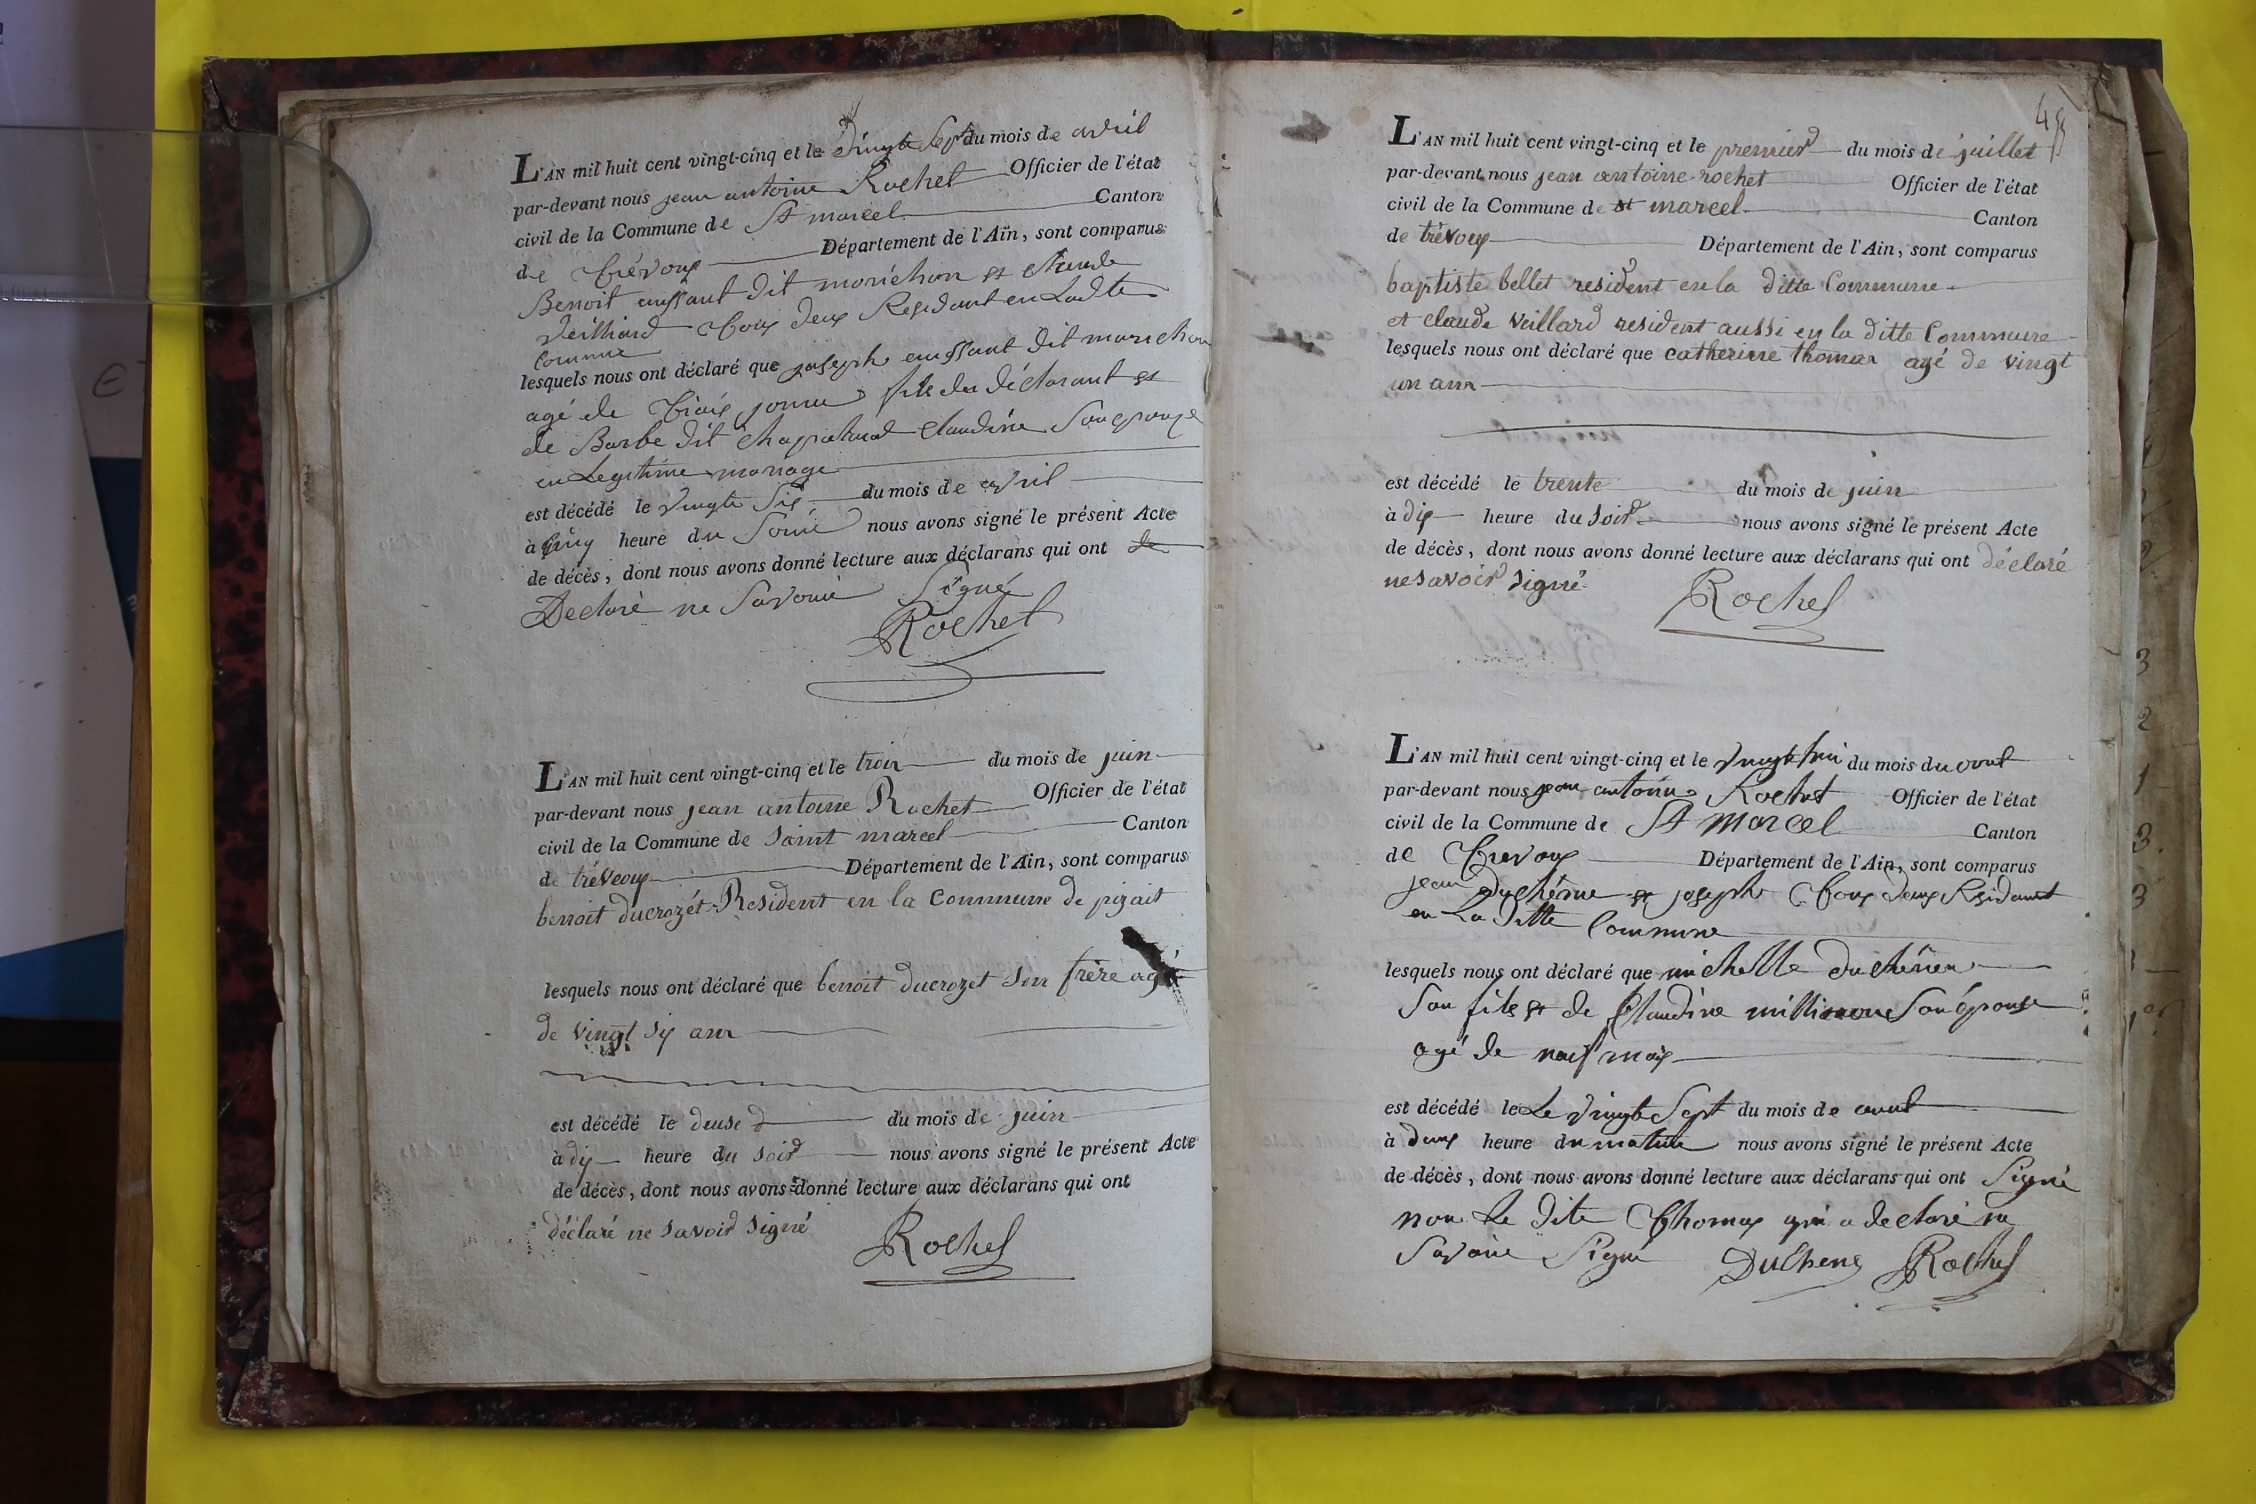 L'AN mil huit cent vingt-cinq et le vingte Sept du mois de avril
par-devant nous jean antoine Rochet Officier de l'état
civil de la Commune de St marcel Canton
de trévoux Département de l'Ain, sont comparus
Benoit dit morichon et claude
veilliard tous deux Residant en Ladte
Commune
lesquels nous ont déclaré que joseph dit morichon
agé de trois fils du déclarant et
de Barbe dit Claudine Son epouse
en Legitime mariage
est décédé le vingte Six du mois de avril
à cinq heure du Soire nous avons signé le présent Acte
de décès, dont nous avons donné lecture aux déclarans qui ont de
Declaré ne Savoire Signé
Rochet
L'AN mil huit cent vingt-cinq et le trois du mois de juin
par-devant nous jean antoine Rochet Officier de l'état
civil de la Commune de saint marcel Canton
de tréveoux Département de l'Ain, sont comparus
benoit ducrozét Resident en la Commune de pizait
lesquels nous ont déclaré que benoit ducrozet son frère agé
de vingt six ans
est décédé le deux du mois de juin
à dix heure du soird nous avons signé le présent Acte
de décès, dont nous avons donné lecture aux déclarans qui ont
déclaré ne savoird signé
Rochet
45
L'AN mil huit cent vingt-cinq et le premierd du mois de juillet
par-devant nous jean antoine rochet Officier de l'état
civil de la Commune de st marcel Canton
de trévoux Département de l'Ain, sont comparus
baptiste bellet resident en la ditte Commune
et claude veillard resident aussi en la ditte Commune
lesquels nous ont déclaré que catherine thomas agé de vingt
un ans
est décédé le trente du mois de juin
à dix heure du soird nous avons signé le présent Acte
de décès, dont nous avons donné lecture aux déclarans qui ont déclaré
ne savoird signé
Rochet
L'AN mil huit cent vingt-cinq et le du mois du
par-devant nous jean antoine Rochet Officier de l'état
civil de la Commune de St Marcel Canton
de Trevoux Département de l'Ain, sont comparus
jean duchêne et joseph tous deux Residant
en La ditte Commune
lesquels nous ont déclaré que michelle duchêne
Son fils et de Claudine Son épouse
agé de neuf mois
est décédé le Le vingte Sept du mois de
à deux heure du matin nous avons signé le présent Acte
de décès, dont nous avons donné lecture aux déclarans qui ont Signé
non Le dite Thomas qui a declaré ne
Savoire Signé Duchene Rochet